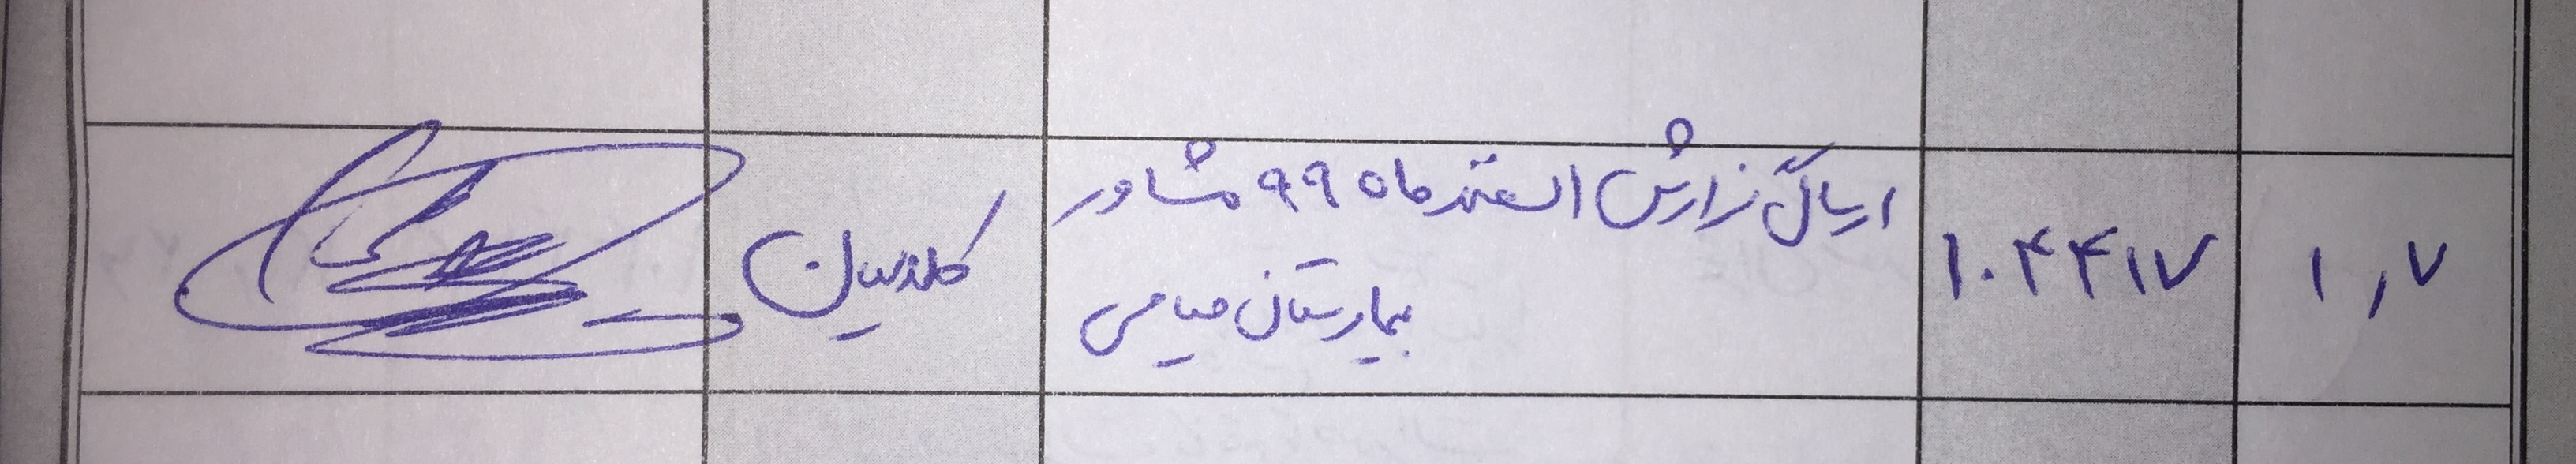 ۱٫۷
۱۰۴۴۱۷
ارسال گزارش اسفند ماه ۹۹ مشاور
بیمارستان میامی